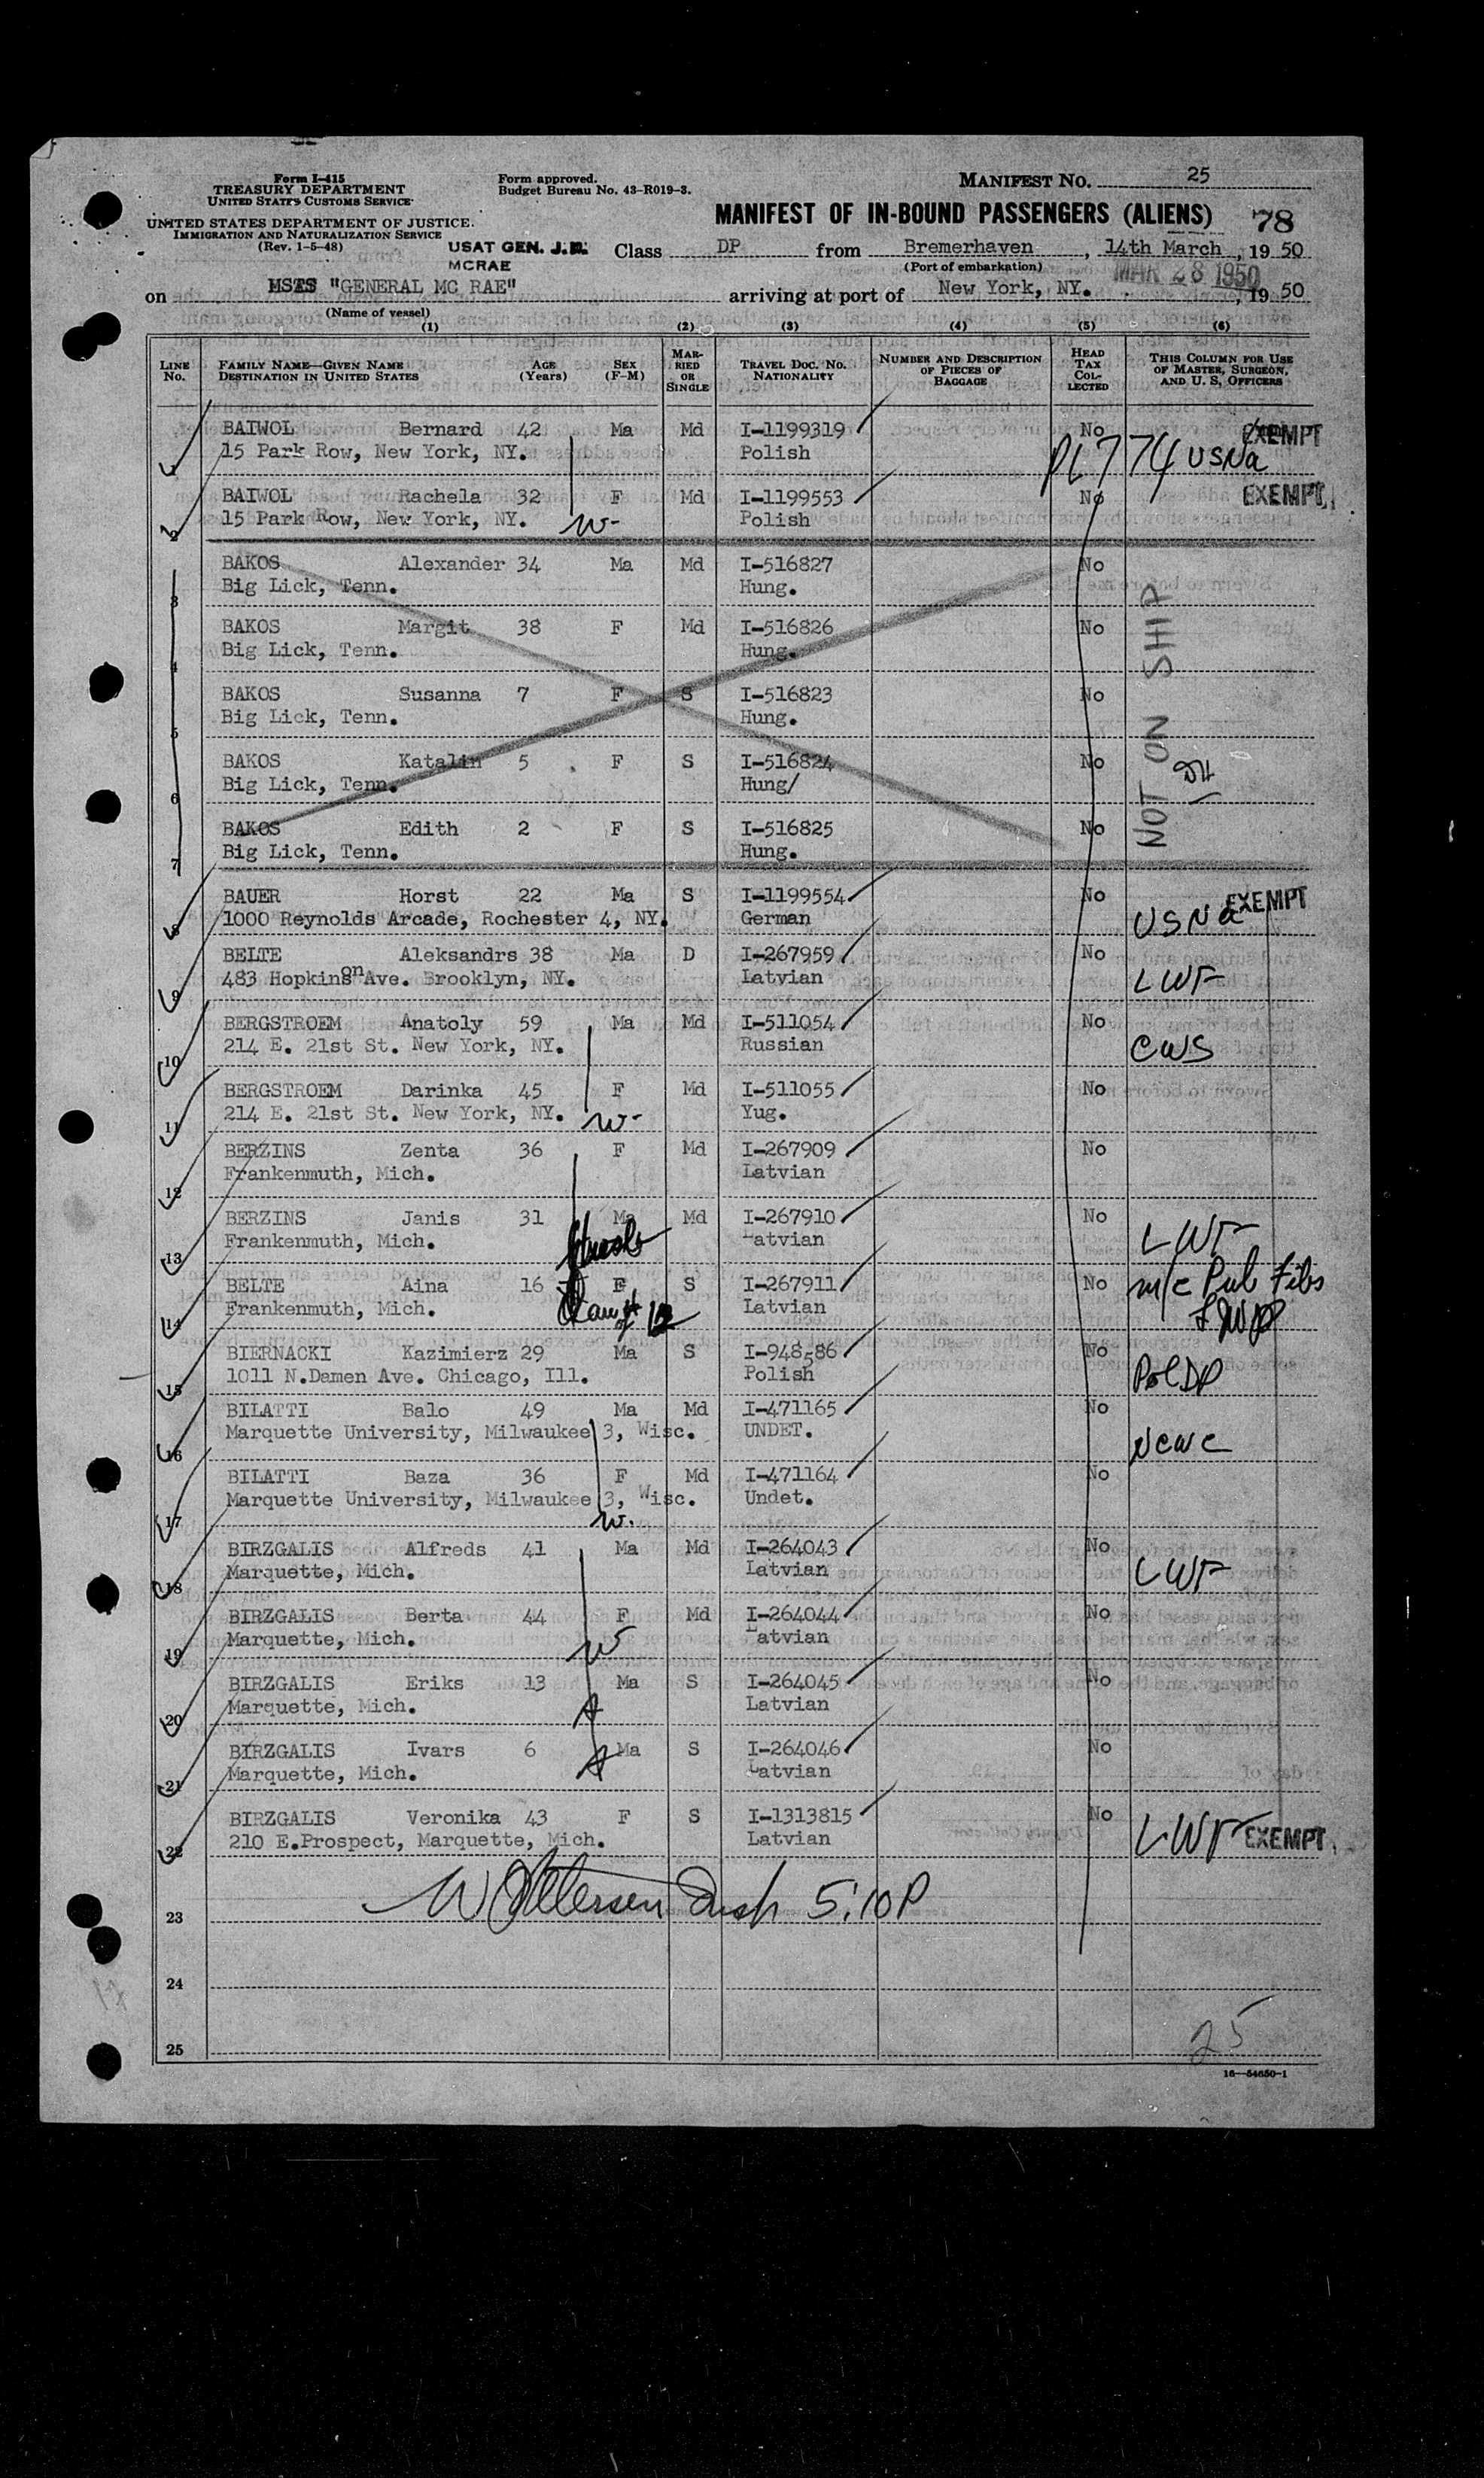 Form I-415
TREASURY DEPARTMENT
UNITED STATES CUSTOMS SERVICE
UNITED STATES DEPARTMENT OF JUSTICE
IMMIGRATION AND NATURALIZATION SERVICE
(Rev. 1-5-48)
Form approved.
Budget Bureau No. 43-R019-3.
MANIFEST No. 25
MANIFEST OF IN-BOUND PASSENGERS (ALIENS) 78
USAT GEN. J.H. MCRAE
Class DP from Bremerhaven, 14th March, 1950
(Port of embarkation)
MAR 28 1950
on MSTS "GENERAL MC RAE" arriving at port of New York, NY., 1950
(Name of vessel)
(1) (2) (3) (4) (5) (6)
LINE No. FAMILY NAME—GIVEN NAME DESTINATION IN UNITED STATES AGE (Years) SEX (F-M) MARRIED OR SINGLE TRAVEL DOC. NO. NATIONALITY NUMBER AND DESCRIPTION OF PIECES OF BAGGAGE HEAD TAX COLLECTED THIS COLUMN FOR USE OF MASTER, SURGEON, AND U. S. OFFICERS
1 BAIWOL Bernard 42 Ma Md I-1199319 No EXEMPT
15 Park Row, New York, NY. Polish PL 774 USNa
2 BAIWOL Rachela 32 F Md I-1199553 No EXEMPT
15 Park Row, New York, NY. W- Polish
3 BAKOS Alexander 34 Ma Md I-516827 No
Big Lick, Tenn. Hung.
4 BAKOS Margit 38 F Md I-516826 No
Big Lick, Tenn. Hung.
5 BAKOS Susanna 7 F S I-516823 No
Big Lick, Tenn. Hung.
NOT ON SHIP
6 BAKOS Katalin 5 F S I-516824 No
Big Lick, Tenn. Hung/
7 BAKOS Edith 2 F S I-516825 No
Big Lick, Tenn. Hung.
8 BAUER Horst 22 Ma S I-1199554 No EXEMPT
1000 Reynolds Arcade, Rochester 4, NY. German USNa
9 BELTE Aleksandrs 38 Ma D I-267959 No
483 Hopkinson Ave. Brooklyn, NY. Latvian LWF
10 BERGSTROEM Anatoly 59 Ma Md I-511054 No
214 E. 21st St. New York, NY. Russian CWS
11 BERGSTROEM Darinka 45 F Md I-511055 No
214 E. 21st St. New York, NY. W- Yug.
12 BERZINS Zenta 36 F Md I-267909 No
Frankenmuth, Mich. Latvian
13 BERZINS Janis 31 Ma Md I-267910 No
Frankenmuth, Mich. Latvian LWF
14 BELTE Aina 16 F S I-267911 No
Frankenmuth, Mich. of 12 Latvian
15 BIERNACKI Kazimierz 29 Ma S I-948586 No
1011 N.Damen Ave. Chicago, Ill. Polish PolDP
16 BILATTI Balo 49 Ma Md I-471165 No
Marquette University, Milwaukee 3, Wisc. UNDET. NCWC
17 BILATTI Baza 36 F Md I-471164 No
Marquette University, Milwaukee 3, Wisc. Undet.
W.
18 BIRZGALIS Alfreds 41 Ma Md I-264043 No
Marquette, Mich. Latvian LWF
19 BIRZGALIS Berta 44 F Md I-264044 No
Marquette, Mich. W Latvian
20 BIRZGALIS Eriks 13 Ma S I-264045 No
Marquette, Mich. Latvian
21 BIRZGALIS Ivars 6 Ma S I-264046 No
Marquette, Mich. Latvian
22 BIRZGALIS Veronika 43 F S I-1313815 No
210 E.Prospect, Marquette, Mich. Latvian LWF EXEMPT
23 5:10P
24
25
25
16—54650-1